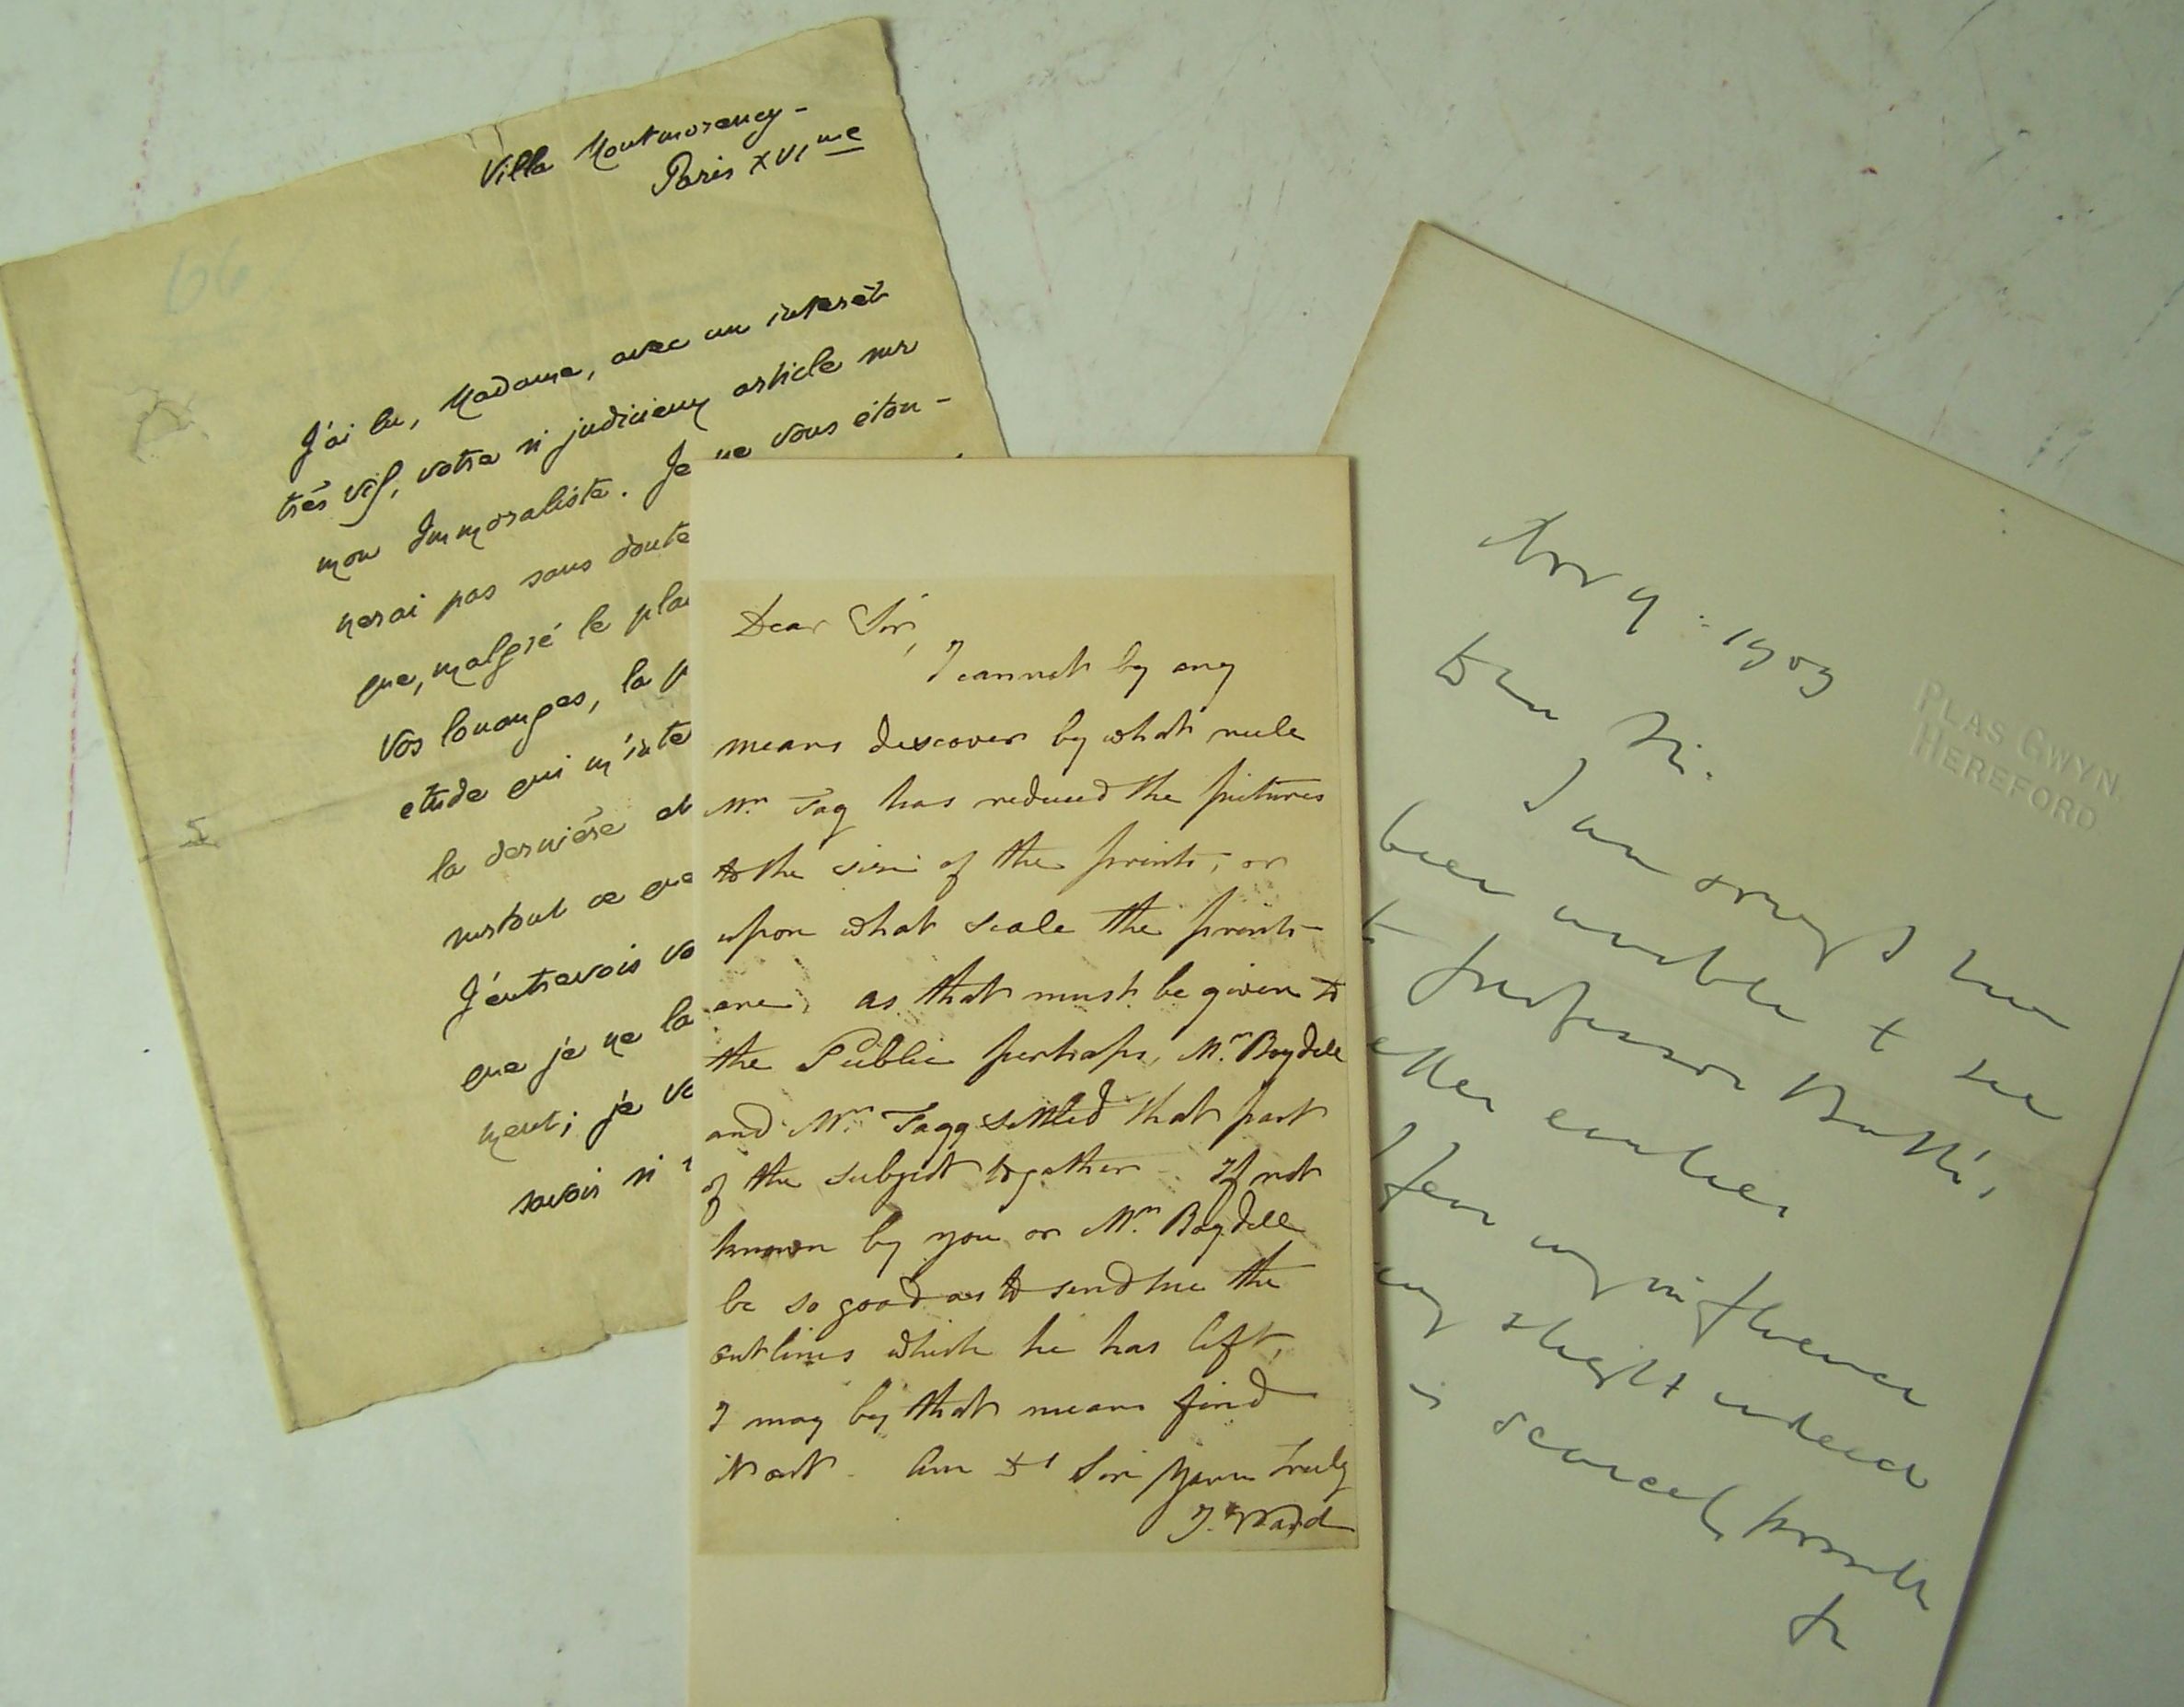 Villa Montmorency -
Paris XVI me
66
J'ai lu, Madame, avec un interêt
très vif, votre si judicieux article sur
mon Immoraliste. Je ne vous éton-
nerai pas sans doute
que, malgré le
vos louanges, la
etude qui
la dernière et
surtout ce que
J'entrevois
que je ne la
ment; je
savoir si
Dear Sir,
I cannot by any
means discover by what rule
Mr. Tag has reduced the pictures
to the size of the prints, or
upon what scale the prints
are, as that must be given to
the Public perhaps, Mr. Boydell
and Mr. Tagg settled that part
of the subject together If not
known by you or Mr. Boydell
be so good as to send me the
outlines which he has left,
I may by that means find
it out. Am Sir Yours truly
J. Ward
PLAS GWYN,
HEREFORD
Nov 9: 1909
Dear Sir.
I am sorry I have
been unable to see
to Professor
earlier
I fear my influence
slight indeed
is scarcely